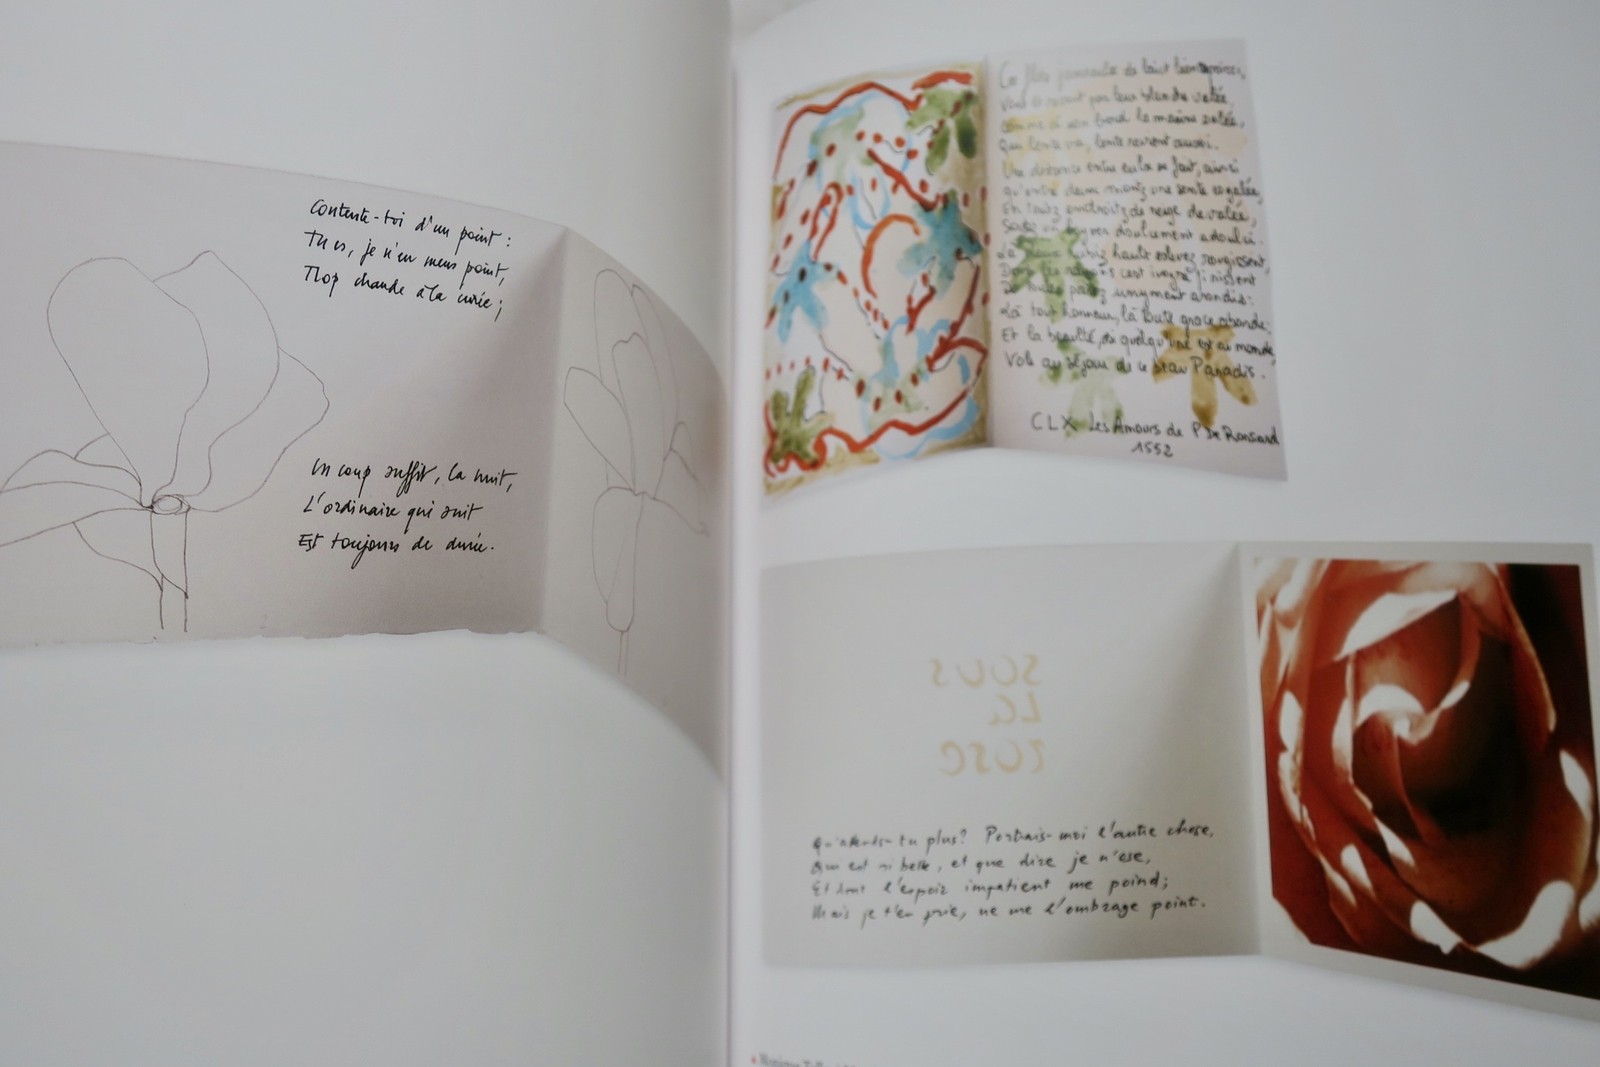 Contente-toi d'un point :
Tu es, je n'en mens point,
Trop chaude à la curée ;
Un coup suffit, la nuit,
L'ordinaire qui suit
Est toujours de durée.
Ce flots jumeaulx de laict bien espoissi,
Vont et revont par leur blanche valée,
comme à son bord la marine salée,
Qui lente va, lente revient aussi.
Une distance entre eulx se fait, ainsi
qu'entre deux montz une sente esgalée,
En toutz endroitz de neige devalée,
Soubz un hyver doulcement adoulci.
Là deux rubiz hault eslevez rougissent,
Dont les rayons cest ivoyre finissent
De toutes partz unyment arondis :
Là tout honneur, là toute grace abonde :
Et la beaulté, si quelqu'une est au monde,
Vole au séjour de ce beau Paradis.
CLX Les Amours de P De Ronsard
1552
SOUS
La
rose
Qu'attends-tu plus? Portrais-moi l'autre chose,
Qui est si belle, et que dire je n'ose,
Et dont l'espoir impatient me poind ;
Mais je t'en prie, ne me l'ombrage point.